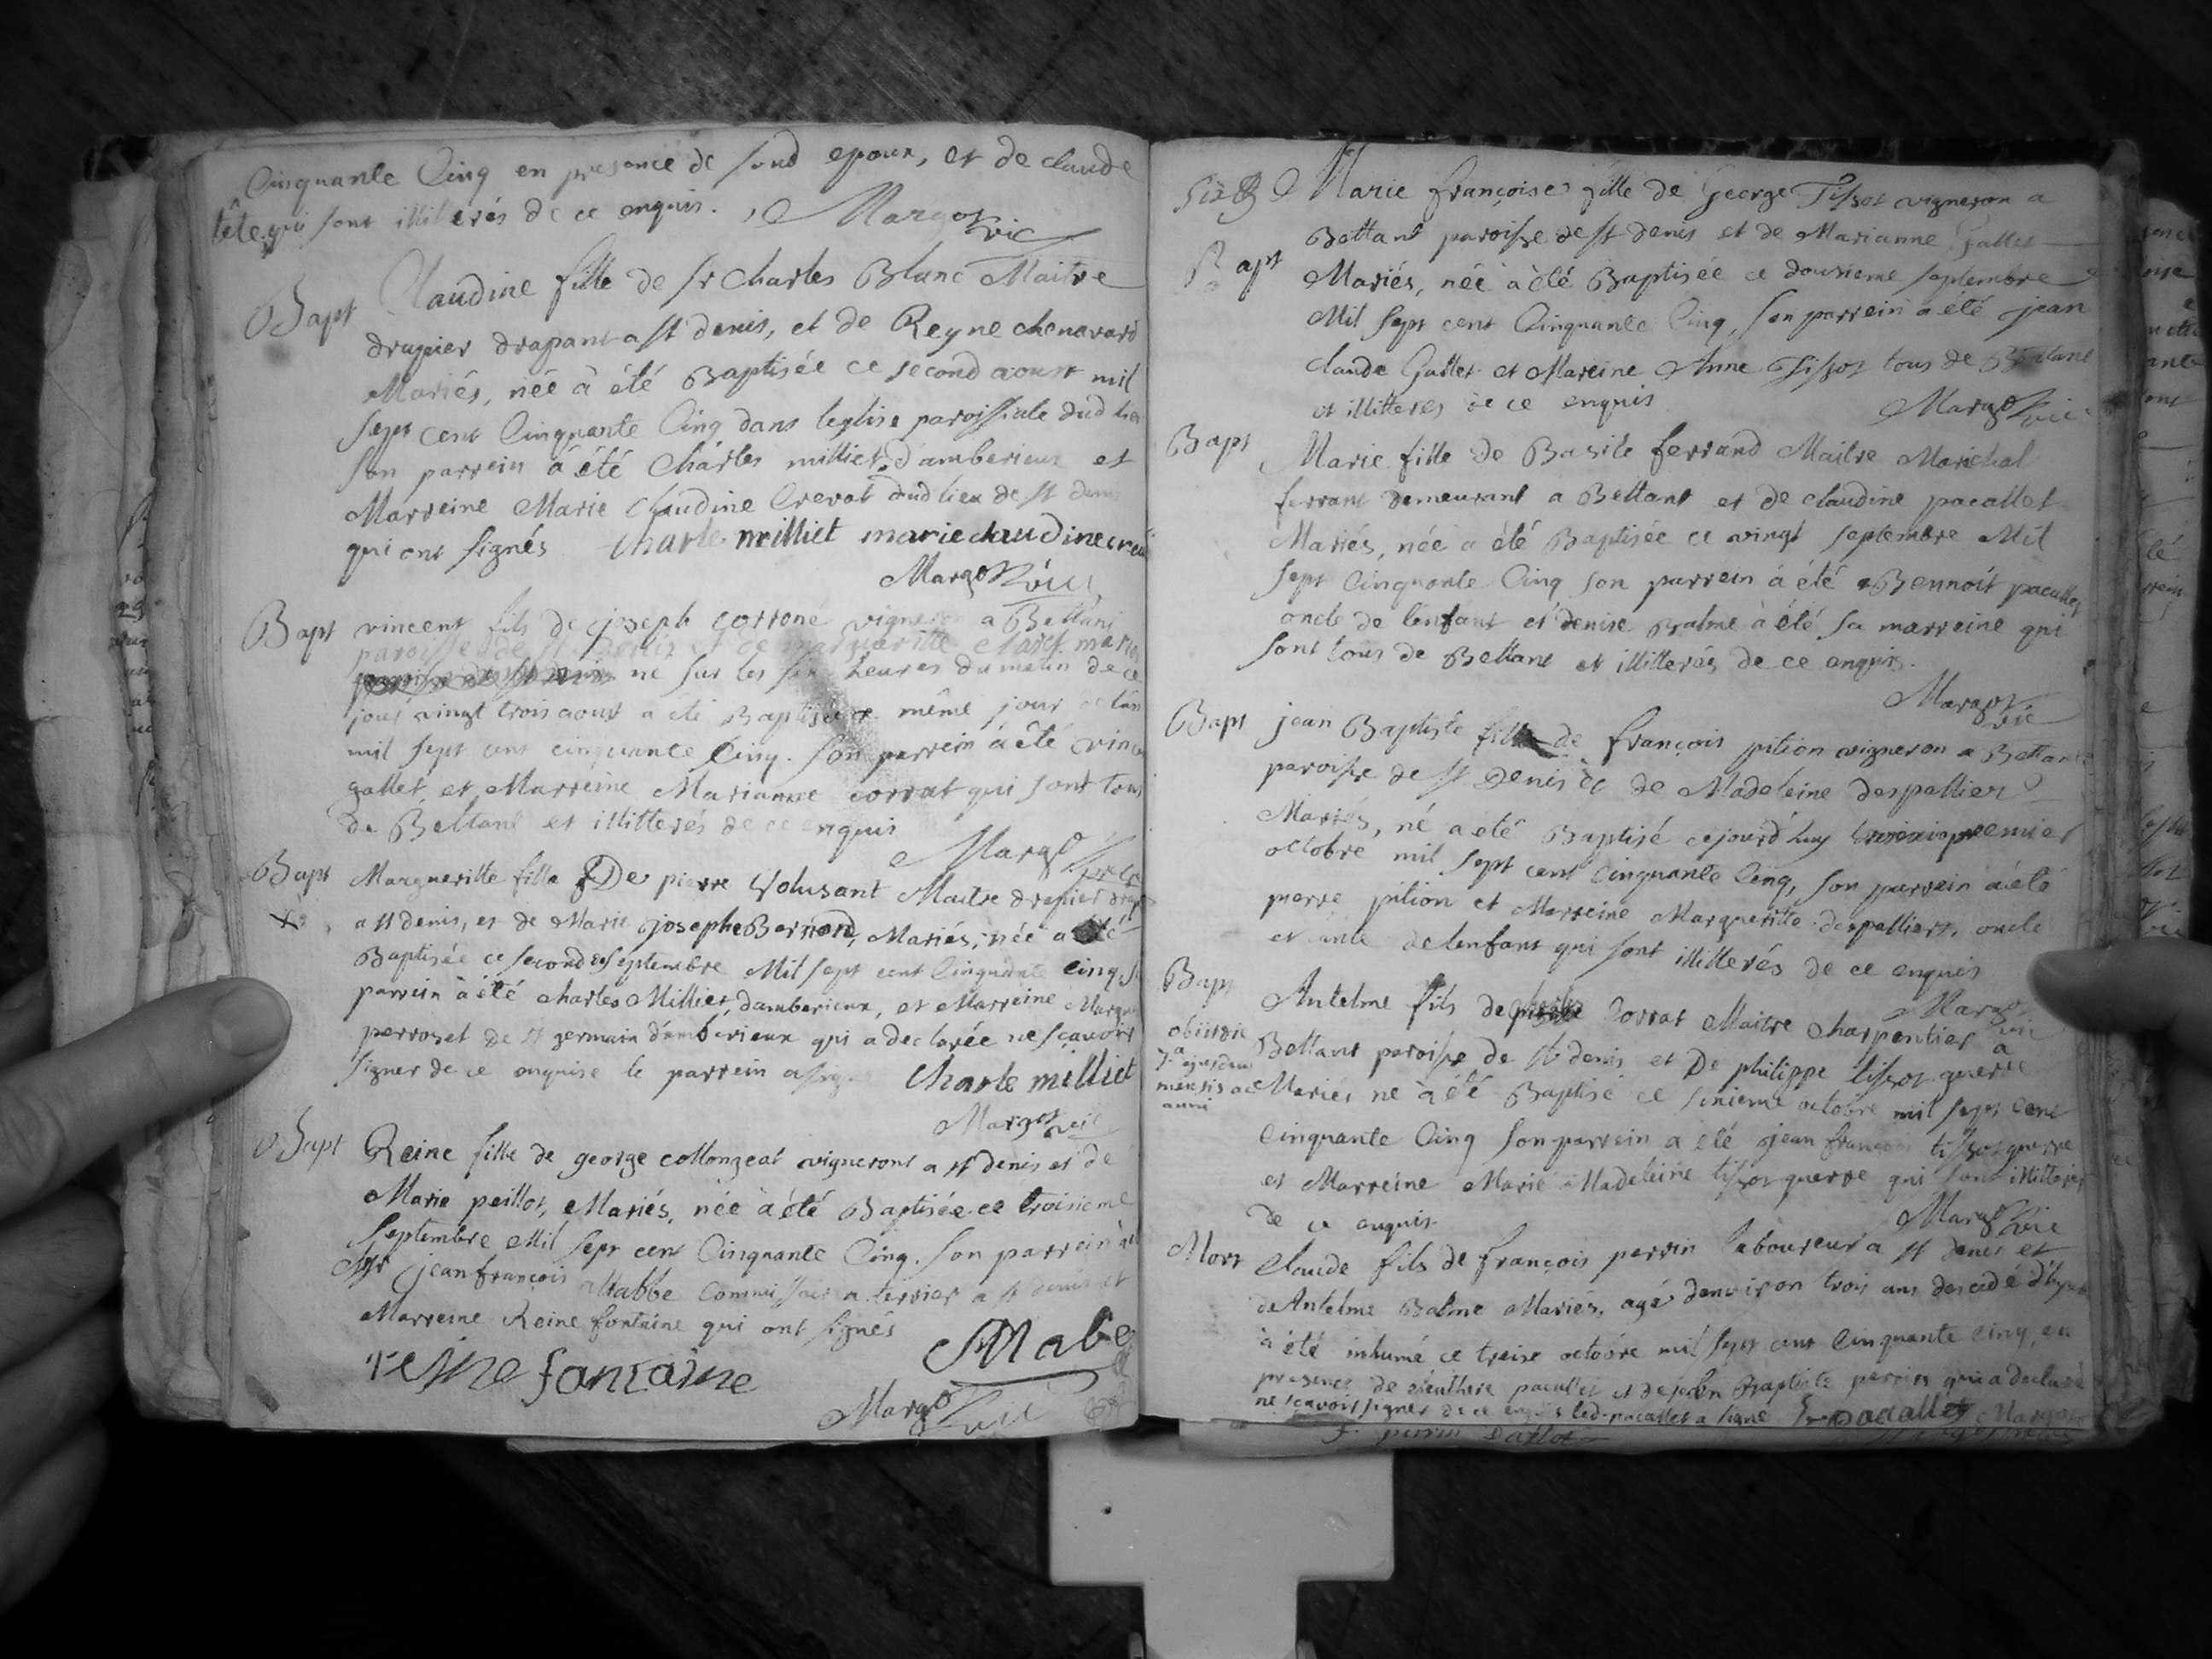 Cinquante Cinq en presence de sond epoux, et de claude
tête qui sont illiterés de ce enquis. Margot vic
Bapt Claudine fille de sr Charles Blanc Maitre
drapier drapant a st denis, et de Reyne chenavard
Mariés, née à été Baptisée ce second aoust mil
sept cent Cinquante Cinq dans leglise paroissiale dud lieu
son parrein à été Charles milliet d'amberieux et
Marreine Marie Claudine Crevat dud lieu de st denis
qui ont signés Charle milliet marie claudine
Margot vic
Bapt vincent fils de joseph corroné vigneron a Bettant
paroisse de st denis et de margueritte
né sur les six heures du matin de ce
jour vingt trois aoust a été Baptisé ce même jour de lan
mil sept cent cinquante Cinq. son parrein à été
gallet et Marreine Marianne corrat qui sont tous
de Bettant et illitterés de ce enquis
Margot vic
Bapt Margueritte fille De pierre Volusant Maitre drapier
a st denis, et de Marie josephe Bernond, Mariés, née a été
Baptisée ce second septembre Mil sept cent Cinquante cinq
parrein à été charles Milliet, damberieux, et Marreine
perroset de st germain d'amberieux qui a declarée ne sçavoir
signer de ce enquise le parrein a signé Charle milliet
Margot vic
Bapt Reine fille de george collongeat vigneront a st denis et de
Marie peillot, Mariés, née à été Baptisée ce troisieme
Septembre Mil sept cent Cinquante Cinq. son parrein à
jean françois Mabbe Commissaire a terrier a st denis et
Marreine Reine fontaine qui ont signés
reine fontaine Mabe
Margot vic
Marie françoise fille de George Tissot vigneron a
Bettant paroisse de st denis et de Marianne Gallet
Bapt Mariés, née à été Baptisée ce dousieme septembre
Mil sept cent Cinquante Cinq, son parrein a été jean
claude Gallet et Mareine Anne Tissot tous de Bettant
et illitteres de ce enquis Margot vic
Bapt Marie fille de Basile ferrand Maitre Marichal
ferrant demeurant a Bettant et de claudine pacallet
Mariés, née a été Baptisée ce vingt septembre Mil
sept Cinquante Cinq son parrein à été Bennoit pacallet
oncle de lenfant et denise Balme à été sa marreine qui
sont tous de Bettant et illitterés de ce enquis.
Margot vic
Bapt jean Baptiste fils de françois pition vigneron a Bettant
paroisse de st Denis et de Madeleine despallier
Mariés, né a été Baptisé cejourd'huy premier
octobre mil sept cent Cinquante Cinq, son parrein à été
pierre pition et Marreine Margueritte despalliers, oncle
et tante de lenfant qui sont illitterés de ce enquis
Margot vic
Bapt Antelme fils de Corrat Maitre charpentier a
obiit die 7a ejusdem mensis ac anni
Bettant paroisse de st denis et De philippe tissot guerre
Mariés né à été Baptisé ce sixieme octobre mil sept cent
Cinquante Cinq son parrein a été jean françois tissot guerre
et Marreine Marie Madeleine tissot guerre qui sont illitterés
de ce enquis Margot vic
Mort Claude fils de françois perrin laboureur a st denis et
de Antelme Balme Mariés, agé denviron trois ans decedé d'hyer
à été inhumé ce treise octobre mil sept cent Cinquante Cinq en
presence de eleuthere pacallet et de jean Baptiste perrin qui a declaré
ne sçavoir signer de ce enquis led. pacallet a signé E pacallet Margot